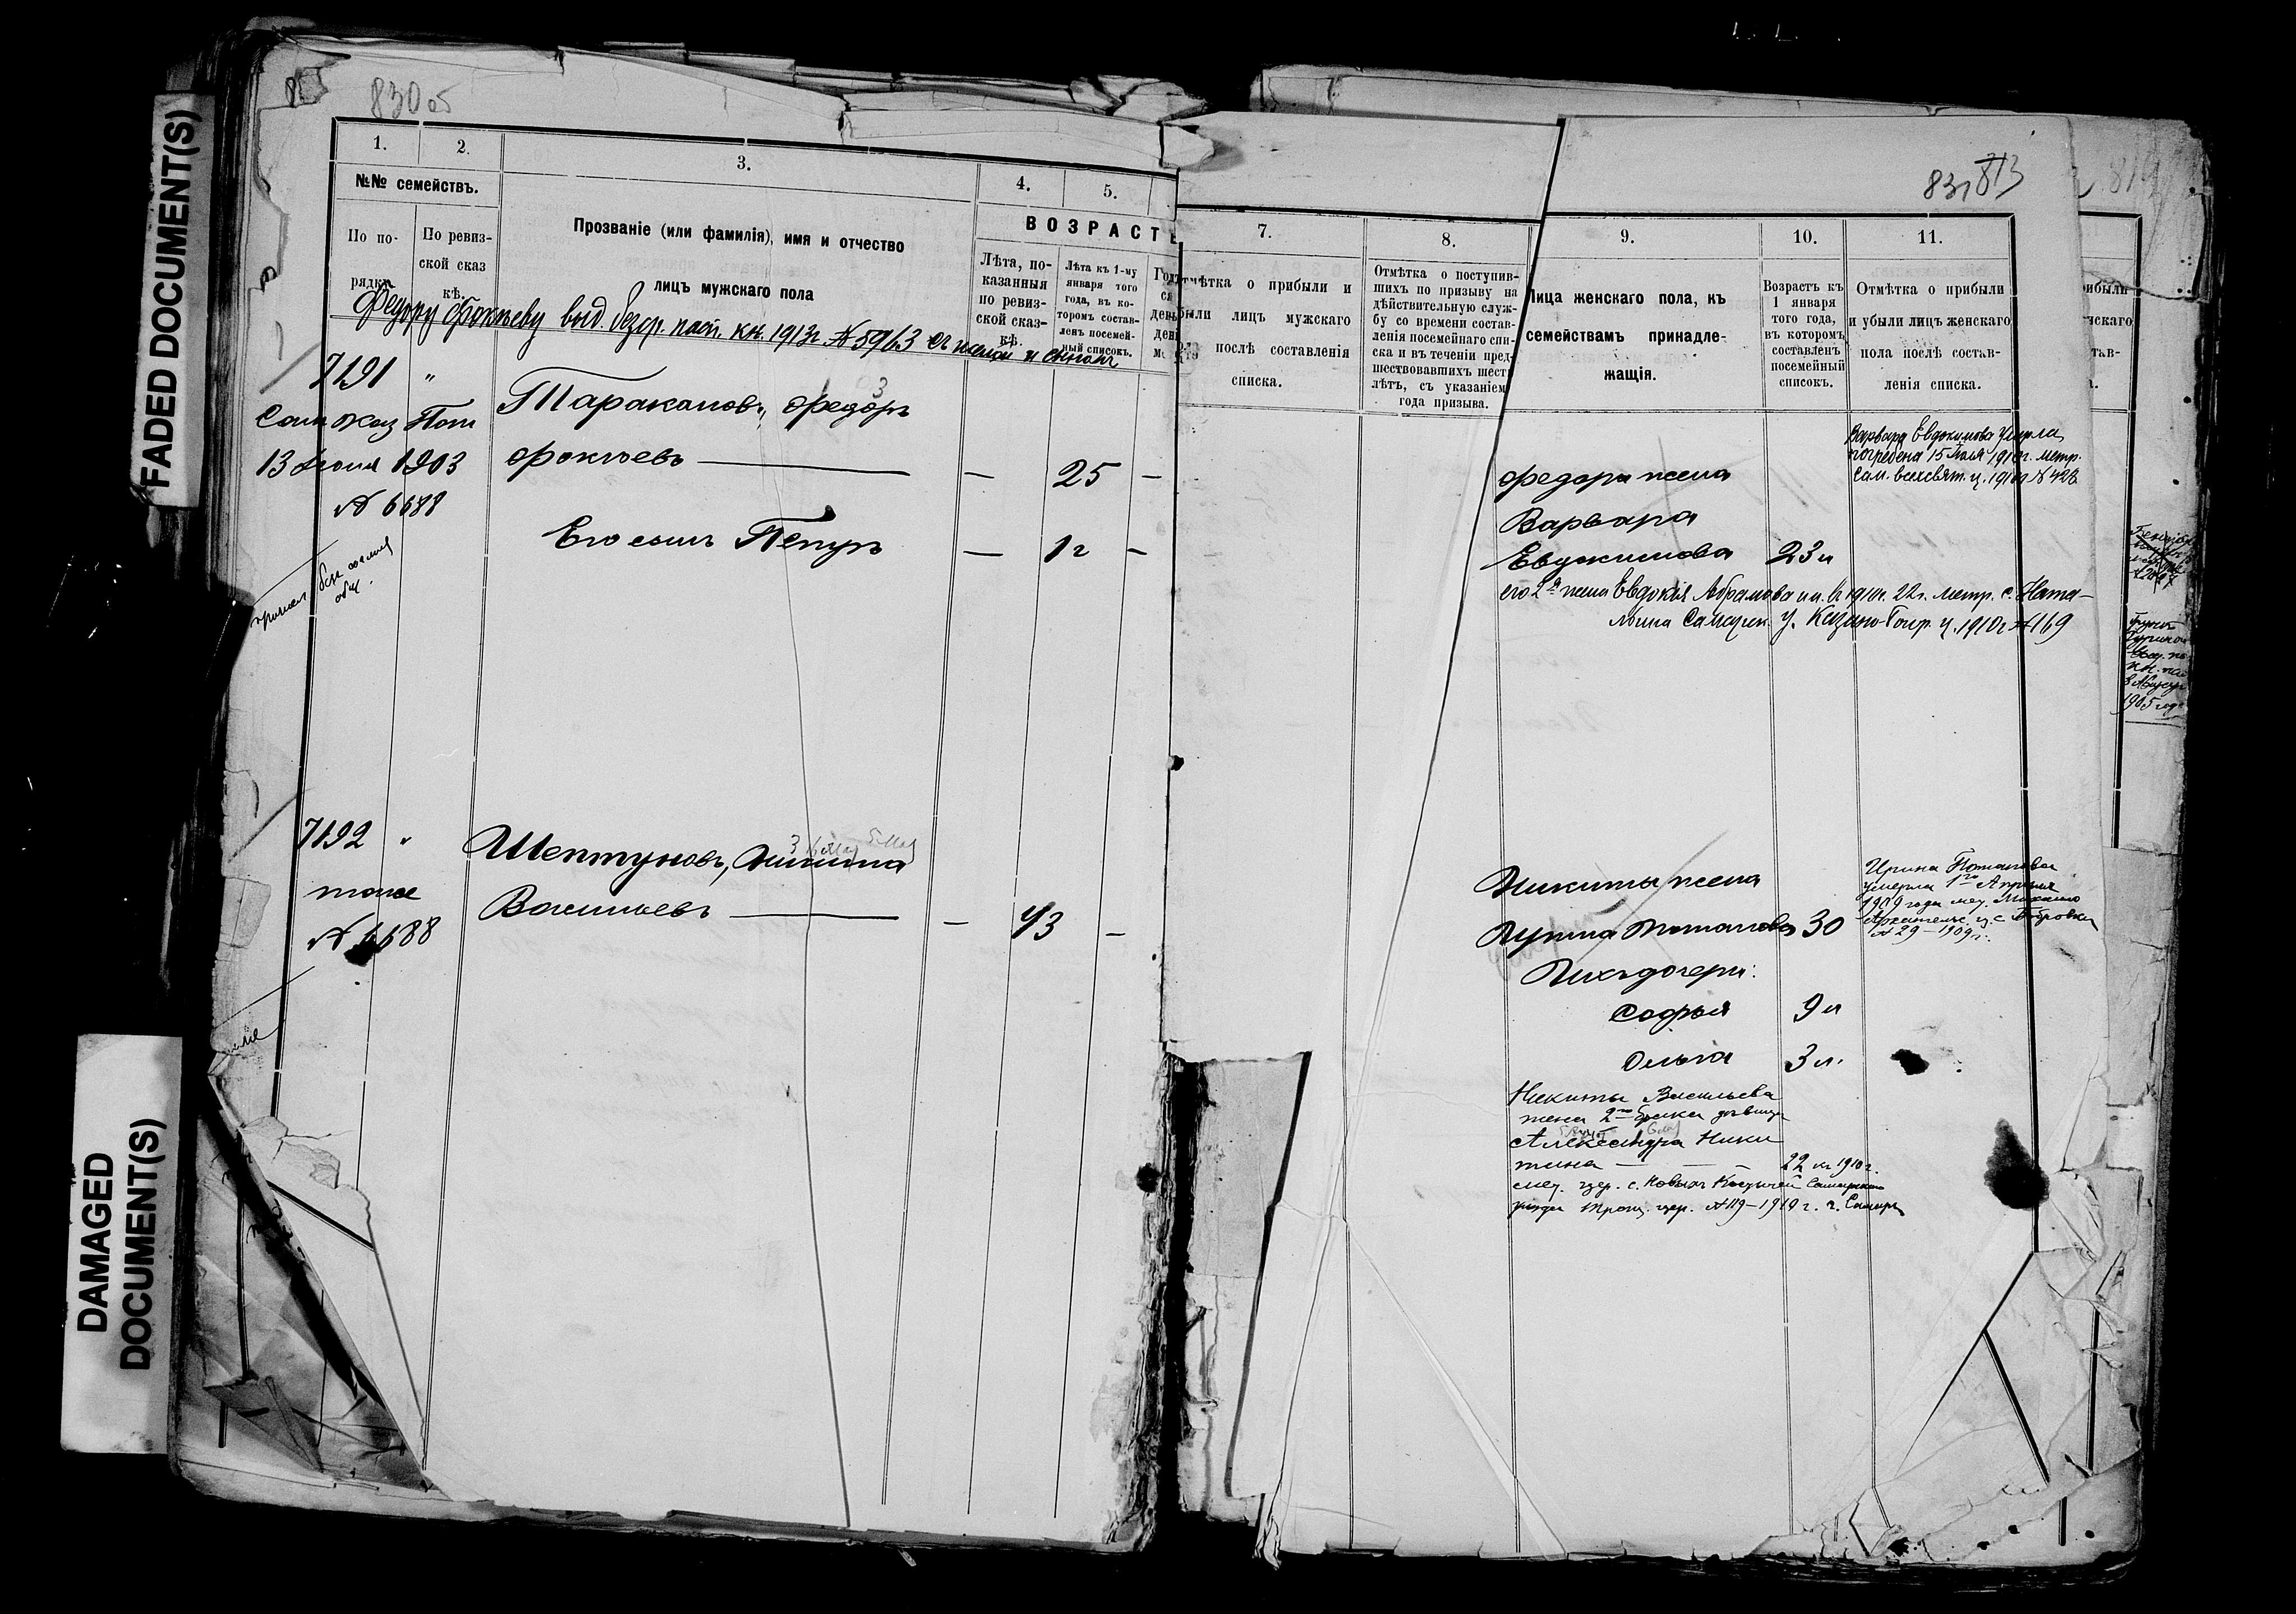 FADED DOCUMENT(S)
DAMAGED
DOCUMENT(S)
830 об
1.
2.
3.
4.
5.
№№ семействъ.
По по-
рядку
По ревиз-
ской сказ
кѣ.
Прозваніе (или фамилія), имя и отчество
лицъ мужскаго пола
ВОЗРАСТЪ
Лѣта, по-
казанныя
по ревиз-
ской сказ-
кѣ.
Лѣта къ 1-му
января того
года, въ ко-
торомъ состав-
ленъ посемей-
ный списокъ.
Федору Фокіеву выд. безср. пасп. кн. 1913г № 5963 съ женой и сыномъ
7191 "
Таракановъ, Федоръ
3
Сам Каз Пал
13 Іюня 1903
Фокіевъ — — 25 —
№ 6688
Его сынъ Петръ — 1г —
7192 "
Шептуновъ, Никита
тоже
Васильевъ — — 43 —
№ 6688
831 813
7.
8.
9.
10.
11.
Отмѣтка о прибыли и
были лицъ мужскаго
послѣ составленія
списка.
Отмѣтка о поступив-
шихъ по призыву на
дѣйствительную служ-
бу со времени состав-
ленія посемейнаго спи-
ска и въ теченіи пред-
шествовавшихъ шести
лѣтъ, съ указаніемъ
года призыва.
Лица женскаго пола, къ
семействамъ принадле-
жащія.
Возрастъ къ
1 января
того года,
въ которомъ
составленъ
посемейный
списокъ.
Отмѣтка о прибыли
и убыли лицъ женскаго
пола послѣ состав-
ленія списка.
Варвара Евдокимова умерла,
погребена 15 Іюля 1910г. метр.
Сам. всехсвят. ц. 1910г №
Федора жена
Варвара
Евдокимова 23 л
его 2я жена Евдокія Абрамова 1910г. 22 г. метр. с. Ната-
льина Самарск. у. Казанс Богор. ц. 1910г № 169
Никиты жена
Ирина Потапова 30
Ирина Потапова
умерла 1го Апрѣля
1909 года мет. Михаило
Архангельс. ц. с. Бобровки
№ 29 – 1909 г.
Ихъ дочери:
Софья 9 л
Ольга 3 л.
Никиты Васильева
жена 2го брака дѣвица
Александра Ники
тина — — 22 къ 1910 г.
мет. цер. с. Новыхъ Костычей Самарскаго
уѣзда Троиц. цер. № 119 – 1910 г. г. Самары
819
1905 год